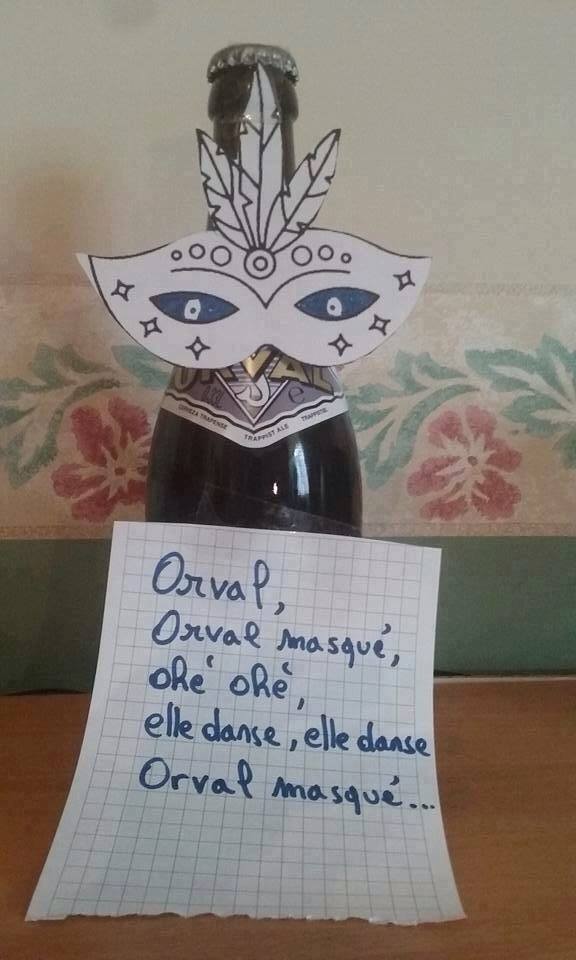 ORVAL
CERVEZA TRAPENSE TRAPPIST ALE TRAPPISTE
Orval,
Orval masqué,
ohé ohé,
elle danse, elle danse
Orval masqué...